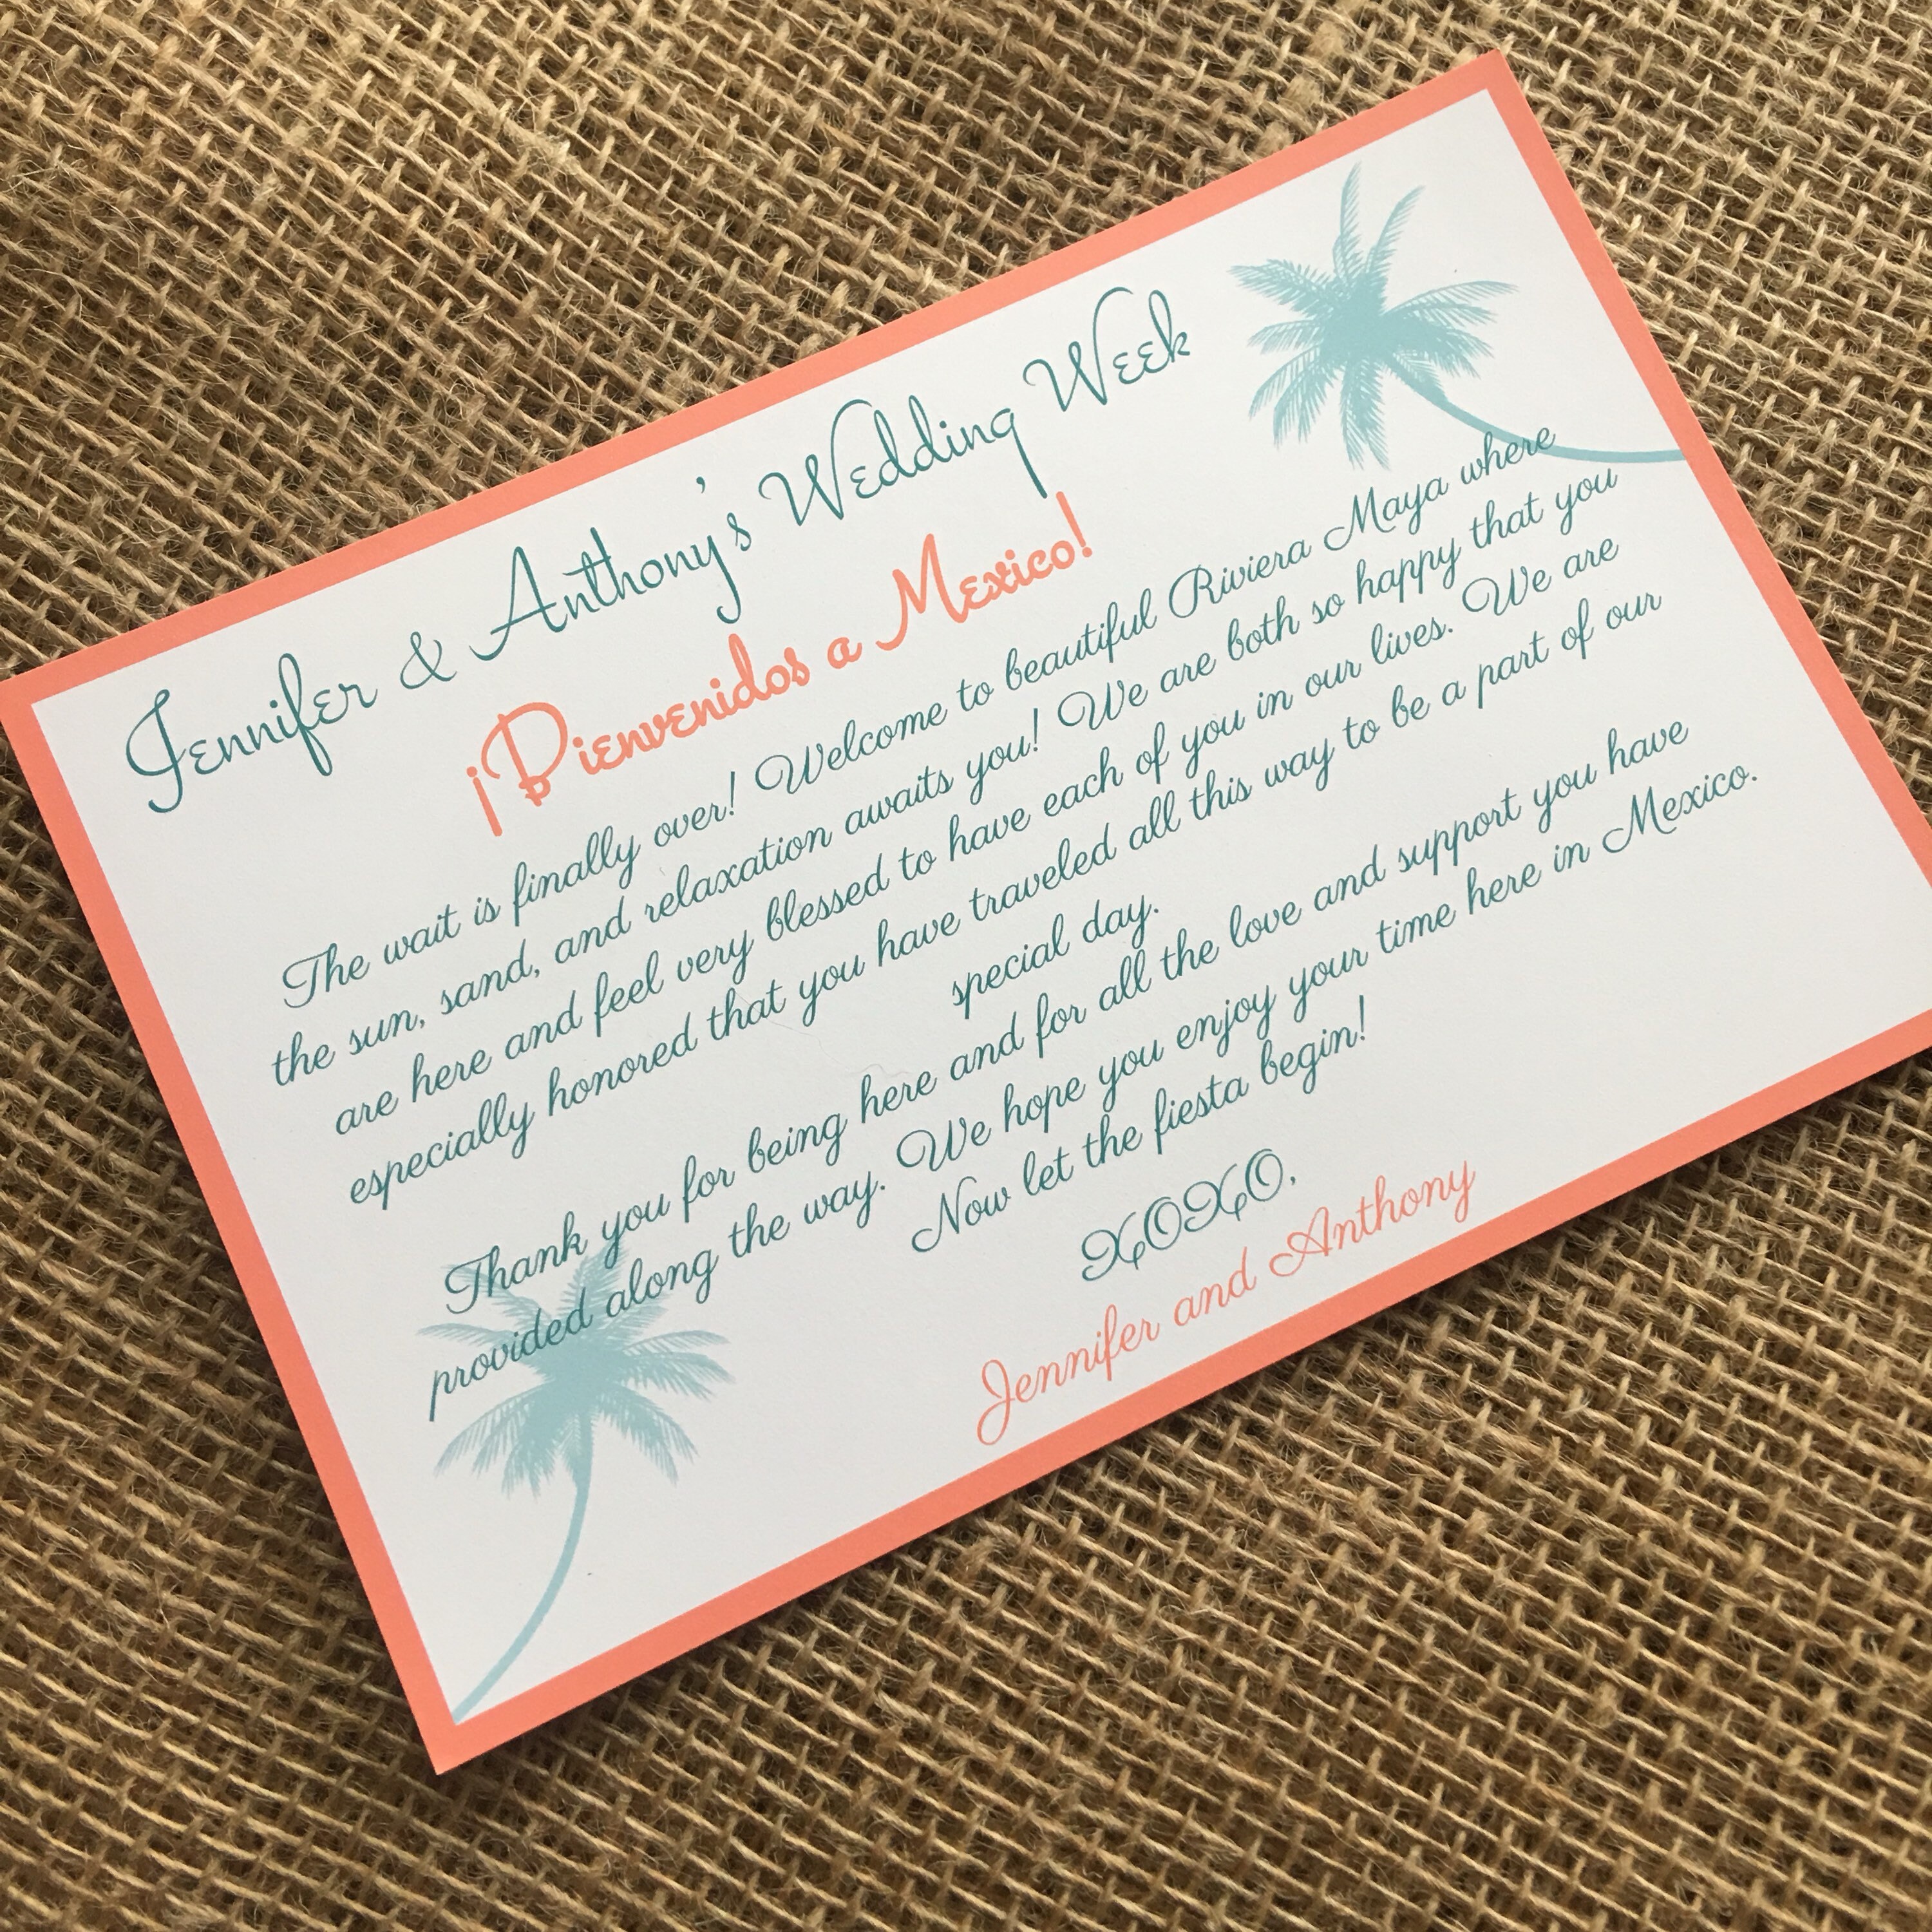 Jennifer & Anthony's Wedding Week
¡Bienvenidos a Mexico!
The wait is finally over! Welcome to beautiful Riviera Maya where
the sun, sand, and relaxation awaits you! We are both so happy that you
are here and feel very blessed to have each of you in our lives. We are
especially honored that you have traveled all this way to be a part of our
special day.
Thank you for being here and for all the love and support you have
provided along the way. We hope you enjoy your time here in Mexico.
Now let the fiesta begin!
XOXO,
Jennifer and Anthony